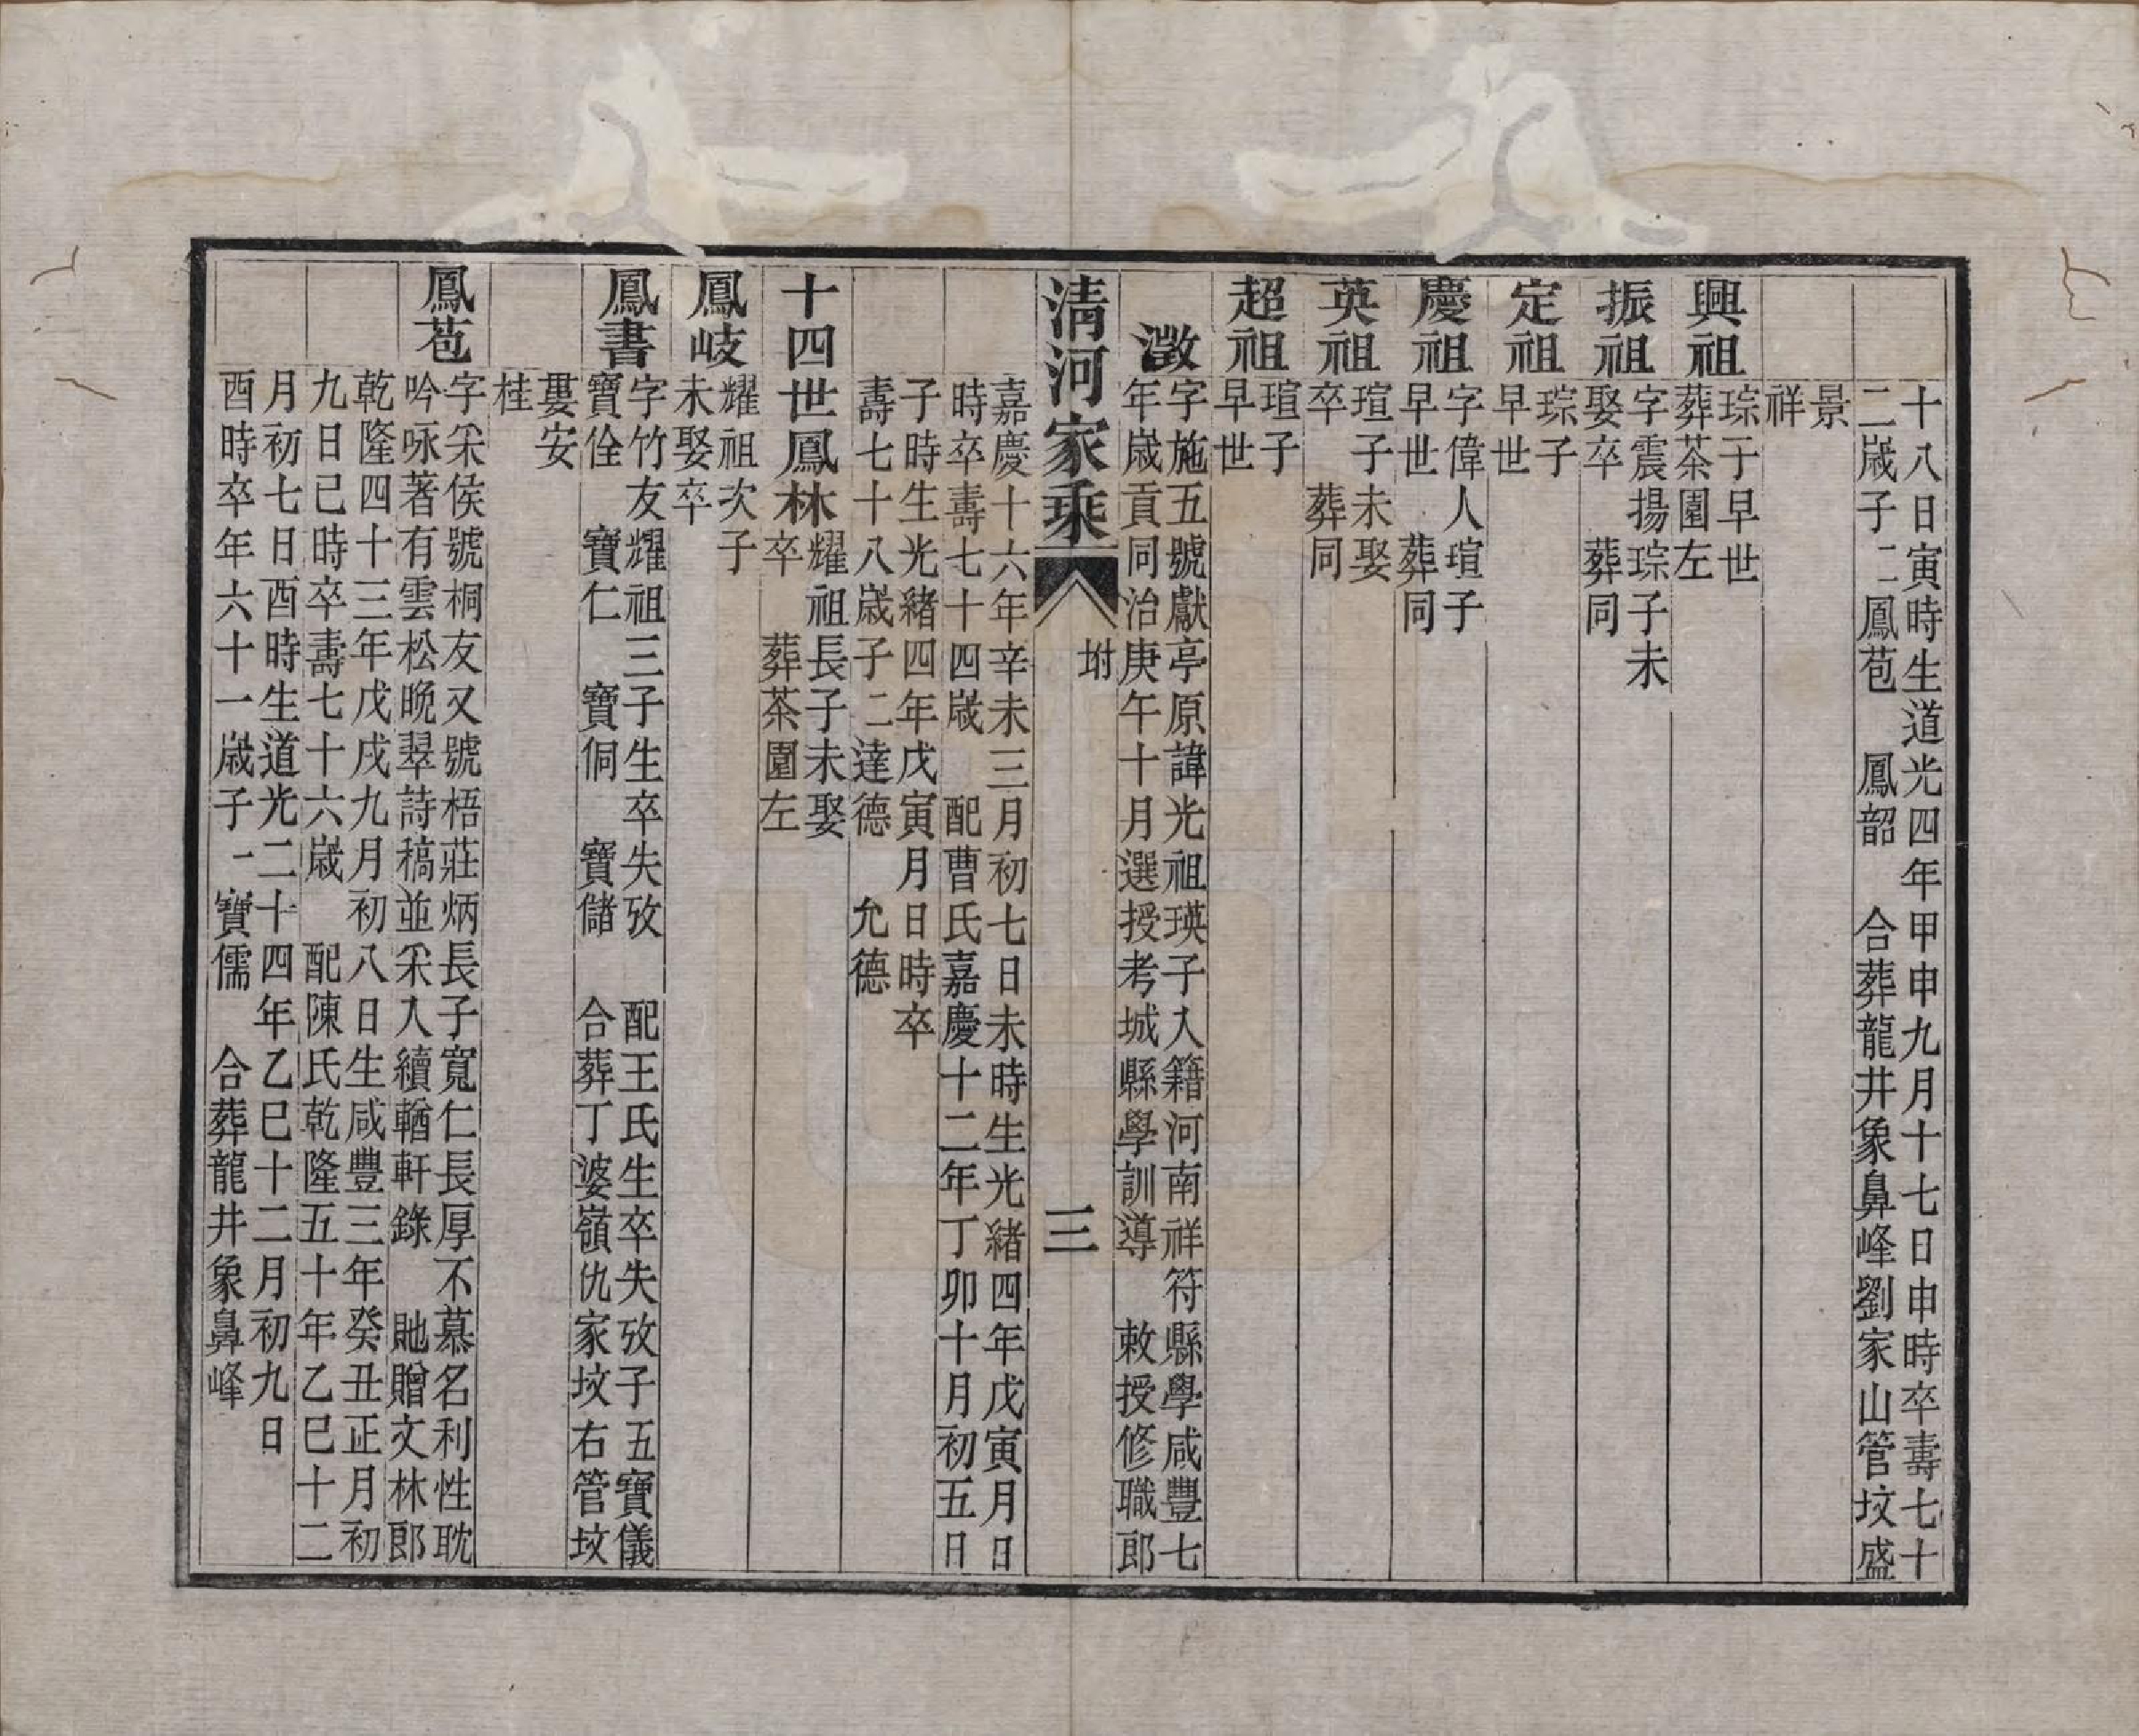 十八日寅時生道光四年甲申九月十七日申時卒壽七十
二歲子二鳳苞　鳳韶　合葬龍井象鼻峰劉家山管坟盛
景
祥
興祖
琮子早世
葬茶園左
振祖
字震揚琮子未
娶卒　葬同
定祖
琮子
早世
慶祖
字偉人瑄子
早世　葬同
英祖
瑄子未娶
卒　葬同
超祖
瑄子
早世
澂
字施五號獻亭原諱光祖瑛子入籍河南祥符縣學咸豐七
年歲貢同治庚午十月選授考城縣學訓導　敕授修職郎
清河家乘
坿
三
嘉慶十六年辛未三月初七日未時生光緒四年戊寅月日
時卒壽七十四歲　配曹氏嘉慶十二年丁卯十月初五日
子時生光緒四年戊寅月日時卒
壽七十八歲子二達德　允德
十四世鳳林
耀祖長子未娶
卒　葬茶園左
鳳岐
耀祖次子
未娶卒
鳳書
字竹友耀祖三子生卒失攷　配王氏生卒失攷子五寶儀
寶佺　寶仁　寶侗　寶儲　合葬丁婆嶺仇家坟右管坟
婁安
桂
鳳苞
字采侯號桐友又號梧莊炳長子寬仁長厚不慕名利性耽
吟咏著有雲松晚翠詩稿並采入續輶軒錄　貤贈文林郎
乾隆四十三年戊戌九月初八日生咸豐三年癸丑正月初
九日巳時卒壽七十六歲　配陳氏乾隆五十年乙巳十二
月初七日酉時生道光二十四年乙巳十二月初九日
酉時卒年六十一歲子一寶儒　合葬龍井象鼻峰